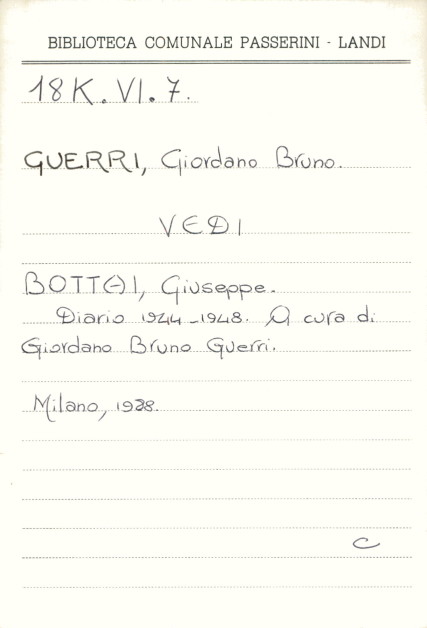 BIBLIOTECA COMUNALE PASSERINI - LANDI
18K.VI.7.
GUERRI, Giordano Bruno.
VEDI
BOTTAI, Giuseppe.
Diario 1944-1948. A cura di
Giordano Bruno Guerri.
Milano, 1988.
C